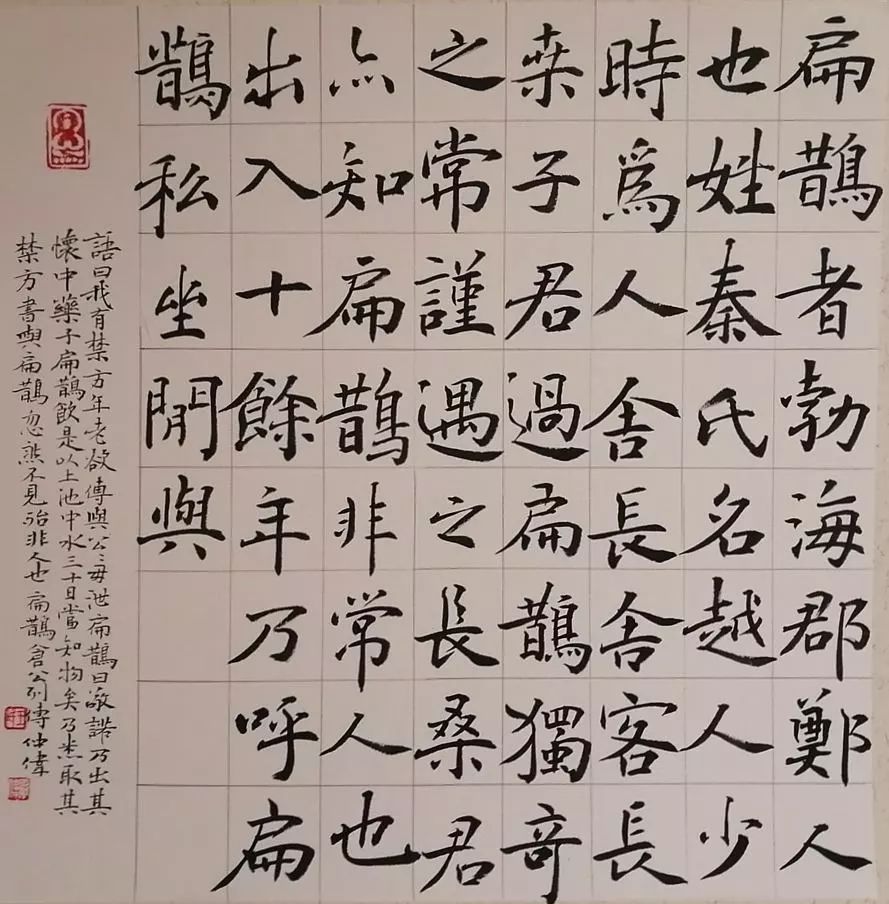 扁鵲者勃海郡鄭人
也姓秦氏名越人少
時爲人舍長舍客長
桒子君過扁鵲獨奇
之常謹遇之長桑君
亦知扁鵲非常人也
出入十餘年乃呼扁
鵲私坐閒與
語曰我有禁方年老欲傳與公公毋泄扁鵲曰敬諾乃出其
懷中藥予扁鵲飲是以上池中水三十日當知物矣乃悉取其
禁方書與扁鵲忽然不見殆非人也扁鵲倉公列傳仲偉